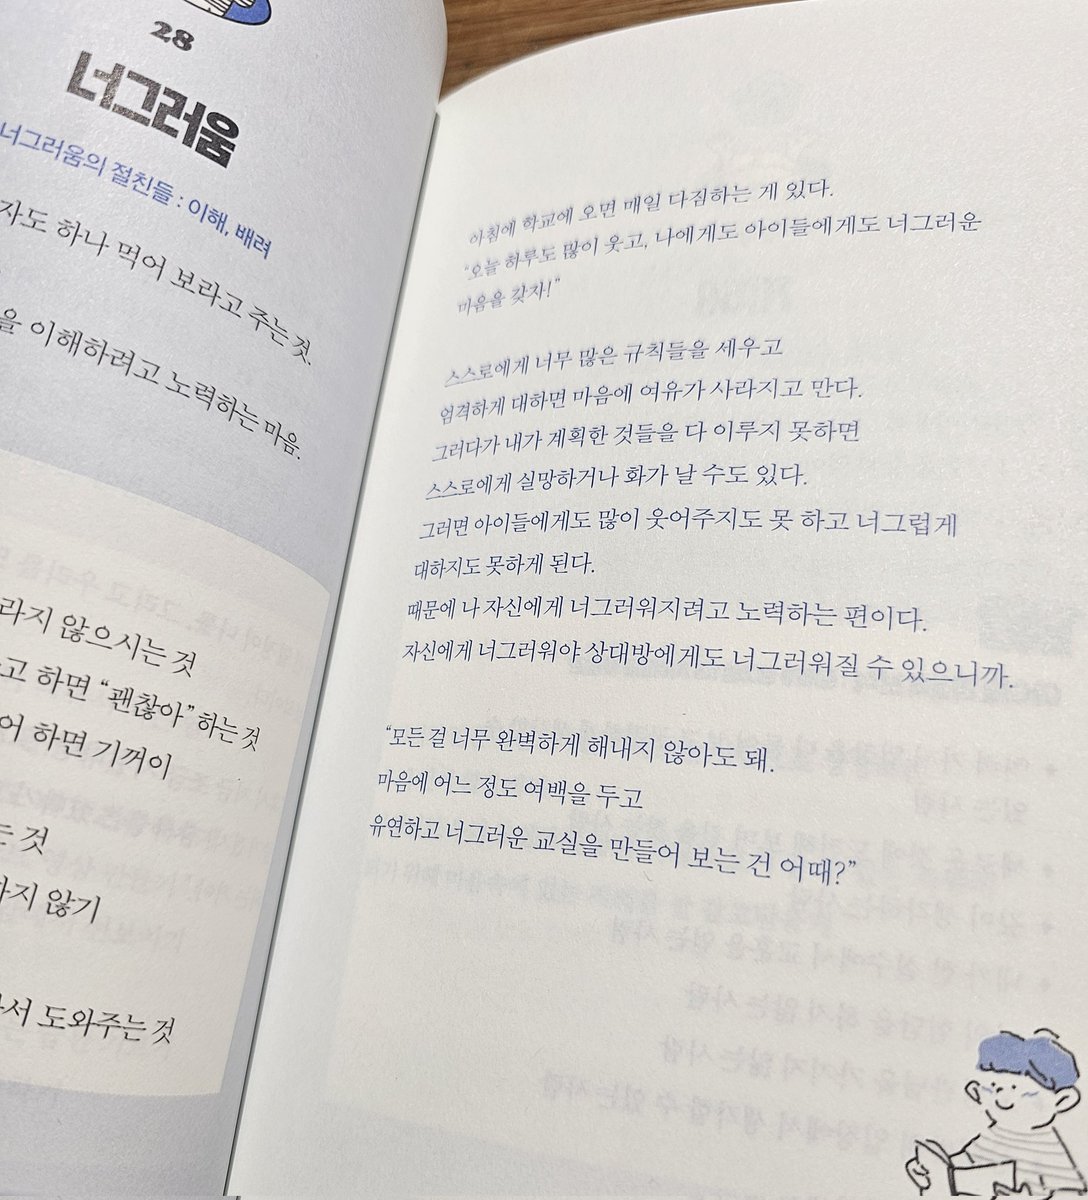 28
너그러움
너그러움의 절친들 : 이해, 배려
자도 하나 먹어 보라고 주는 것.
을 이해하려고 노력하는 마음.
라지 않으시는 것
고 하면 “괜찮아” 하는 것
어 하면 기꺼이
는 것
하지 않기
서 도와주는 것
아침에 학교에 오면 매일 다짐하는 게 있다.
“오늘 하루도 많이 웃고, 나에게도 아이들에게도 너그러운
마음을 갖자!”
스스로에게 너무 많은 규칙들을 세우고
엄격하게 대하면 마음에 여유가 사라지고 만다.
그러다가 내가 계획한 것들을 다 이루지 못하면
스스로에게 실망하거나 화가 날 수도 있다.
그러면 아이들에게도 많이 웃어주지도 못 하고 너그럽게
대하지도 못하게 된다.
때문에 나 자신에게 너그러워지려고 노력하는 편이다.
자신에게 너그러워야 상대방에게도 너그러워질 수 있으니까.
“모든 걸 너무 완벽하게 해내지 않아도 돼.
마음에 어느 정도 여백을 두고
유연하고 너그러운 교실을 만들어 보는 건 어때?”